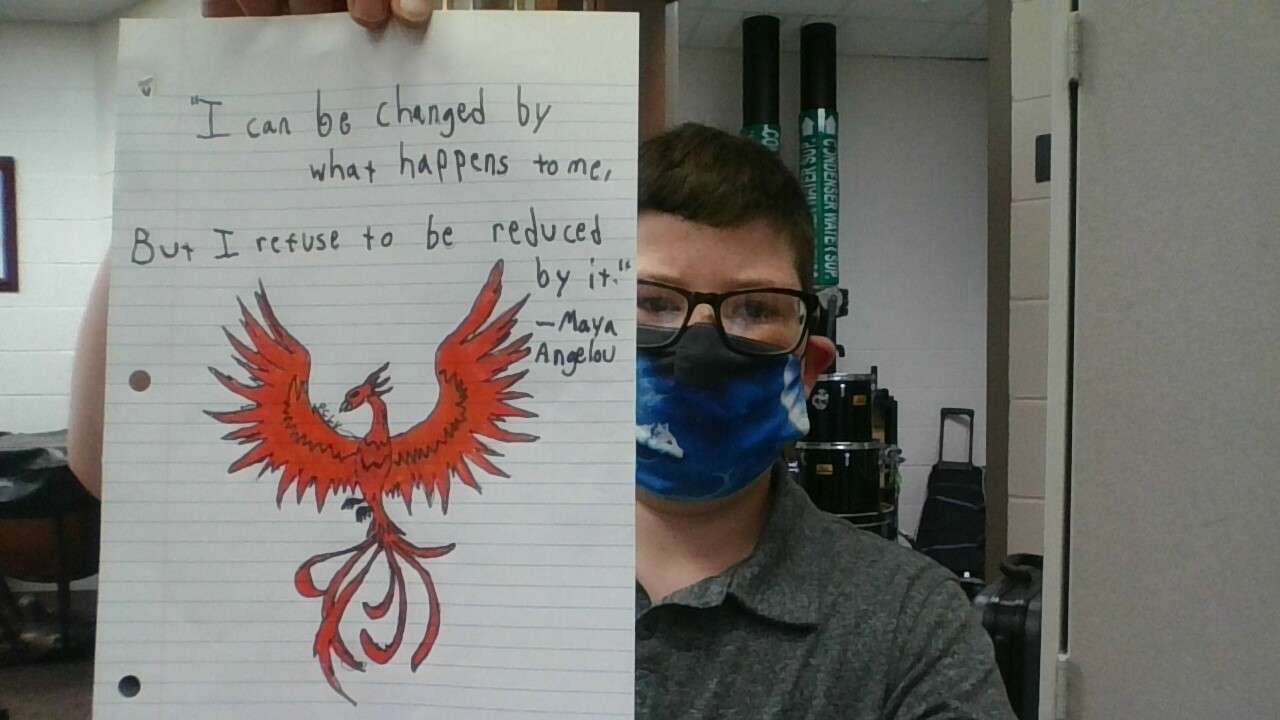 "I can be changed by
what happens to me,
But I refuse to be reduced
by it."
—Maya
Angelou
CONDENSER WATER SUP.
WATER SUP.